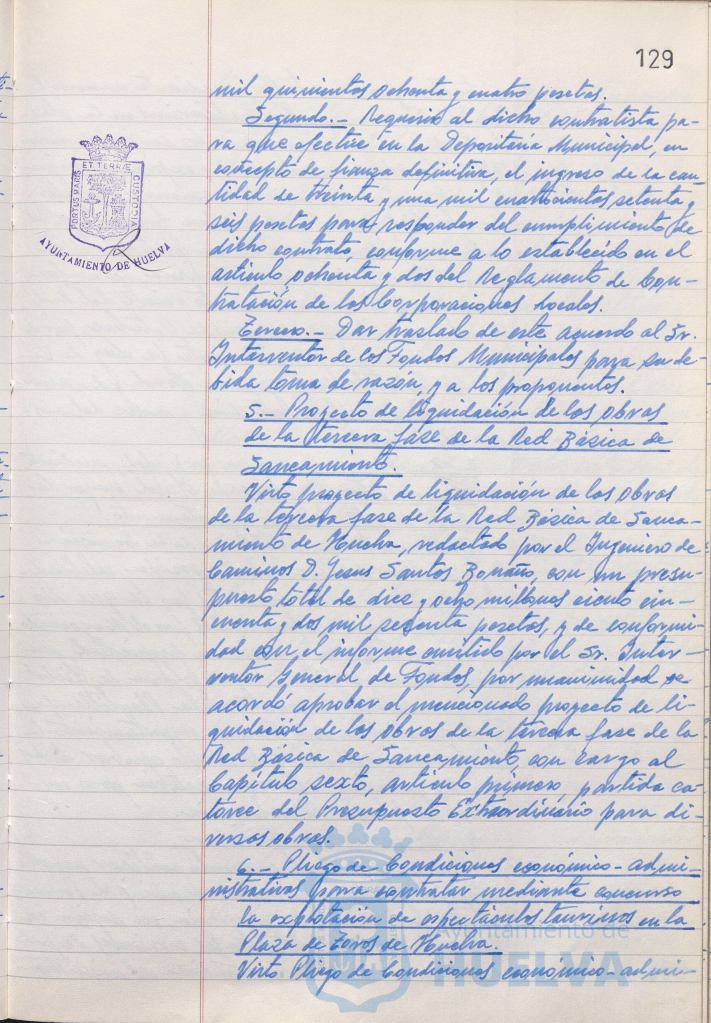 129
mil quinientos ochenta y cuatro pesetas.
Segundo.- Requerir al dicho contratista pa-
ra que efectúe en la Depositaría Municipal, en
concepto de fianza definitiva, el ingreso de la can-
tidad de treinta y una mil cuatrocientos setenta y
seis pesetas para responder del cumplimiento de
dicho contrato, conforme a lo establecido en el
artículo ochenta y dos del Reglamento de Con-
tratación de las Corporaciones Locales.
Tercero.- Dar traslado de este acuerdo al Sr.
Interventor de los Fondos Municipales para su de-
bida toma de razón, y a los proponentes.
5.- Proyecto de liquidación de las obras
de la tercera fase de la Red Básica de
Saneamiento.
Visto proyecto de liquidación de las obras
de la tercera fase de la Red Básica de Sanea-
miento de Huelva, redactado por el Ingeniero de
Caminos D. Jesus Santos Romaño, con un presu-
puesto total de diez y ocho millones ciento cin-
cuenta y dos mil sesenta pesetas, y de conformi-
dad con el informe emitido por el Sr. Inter-
ventor General de Fondos, por unanimidad se
acordó aprobar el mencionado proyecto de li-
quidación de las obras de la tercera fase de la
Red Básica de Saneamiento, con cargo al
Capítulo sexto, artículo primero, partida ca-
torce del Presupuesto Extraordinario para di-
versas obras.
6.- Pliego de Condiciones económico-admi-
nistrativas para contratar mediante concurso
la explotación de espectáculos taurinos en la
Plaza de Toros de Huelva.
Visto Pliego de Condiciones económico-admi-
PORTUS MARIS ET TERRÆ CUSTODIA
AYUNTAMIENTO DE HUELVA
Ayuntamiento de
HUELVA